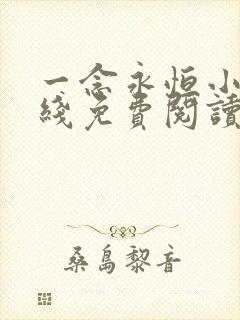 一念永恒小
綫免費閱讀
桑島黎音